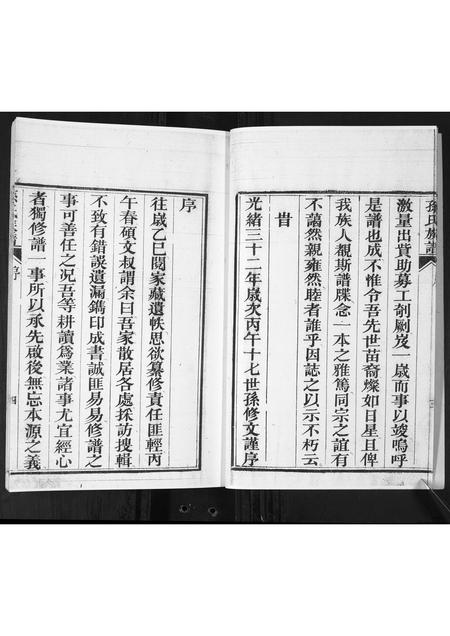 孫氏族譜
激量出貲助募工剞劂歲一歲而事以竣嗚呼
是譜也成不惟令吾先世苗裔燦如日星且俾
我族人覩斯譜牒念一本之雅篤同宗之誼有
不藹然親雍然睦者誰乎因誌之以示不朽云
昔
光緒三十二年歲次丙午十七世孫修文謹序
序
往歲乙巳閱家藏遺帙思欲纂修責任匪輕丙
午春碩文叔謂余曰吾家散居各處採訪搜輯
不致有錯誤遺漏鐫印成書誠匪易易修譜之
事可善任之況吾等耕讀為業諸事尤宜經心
者獨修譜一事所以承先啟後無忘本源之義
序
四